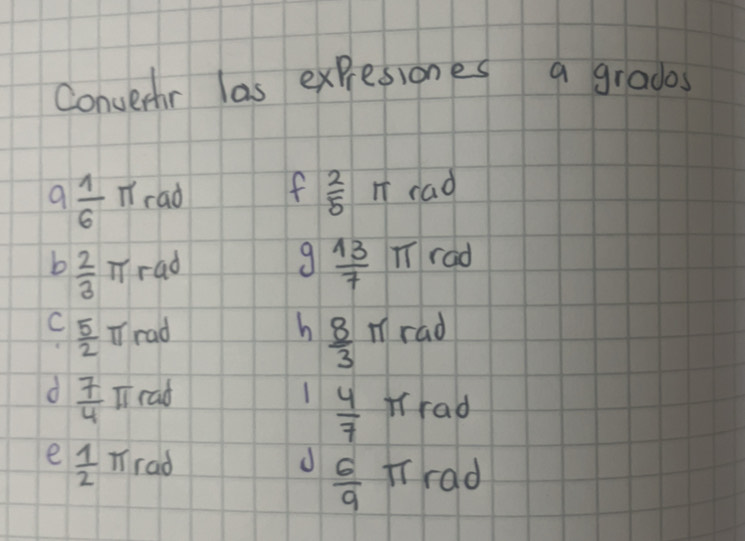 Convertir las expresiones a grados
a 1/6 π rad
b 2/3 π rad
c 5/2 π rad
d 7/4 π rad
e 1/2 π rad
f 2/5 π rad
g 13/7 π rad
h 8/3 π rad
i 4/7 π rad
j 6/9 π rad